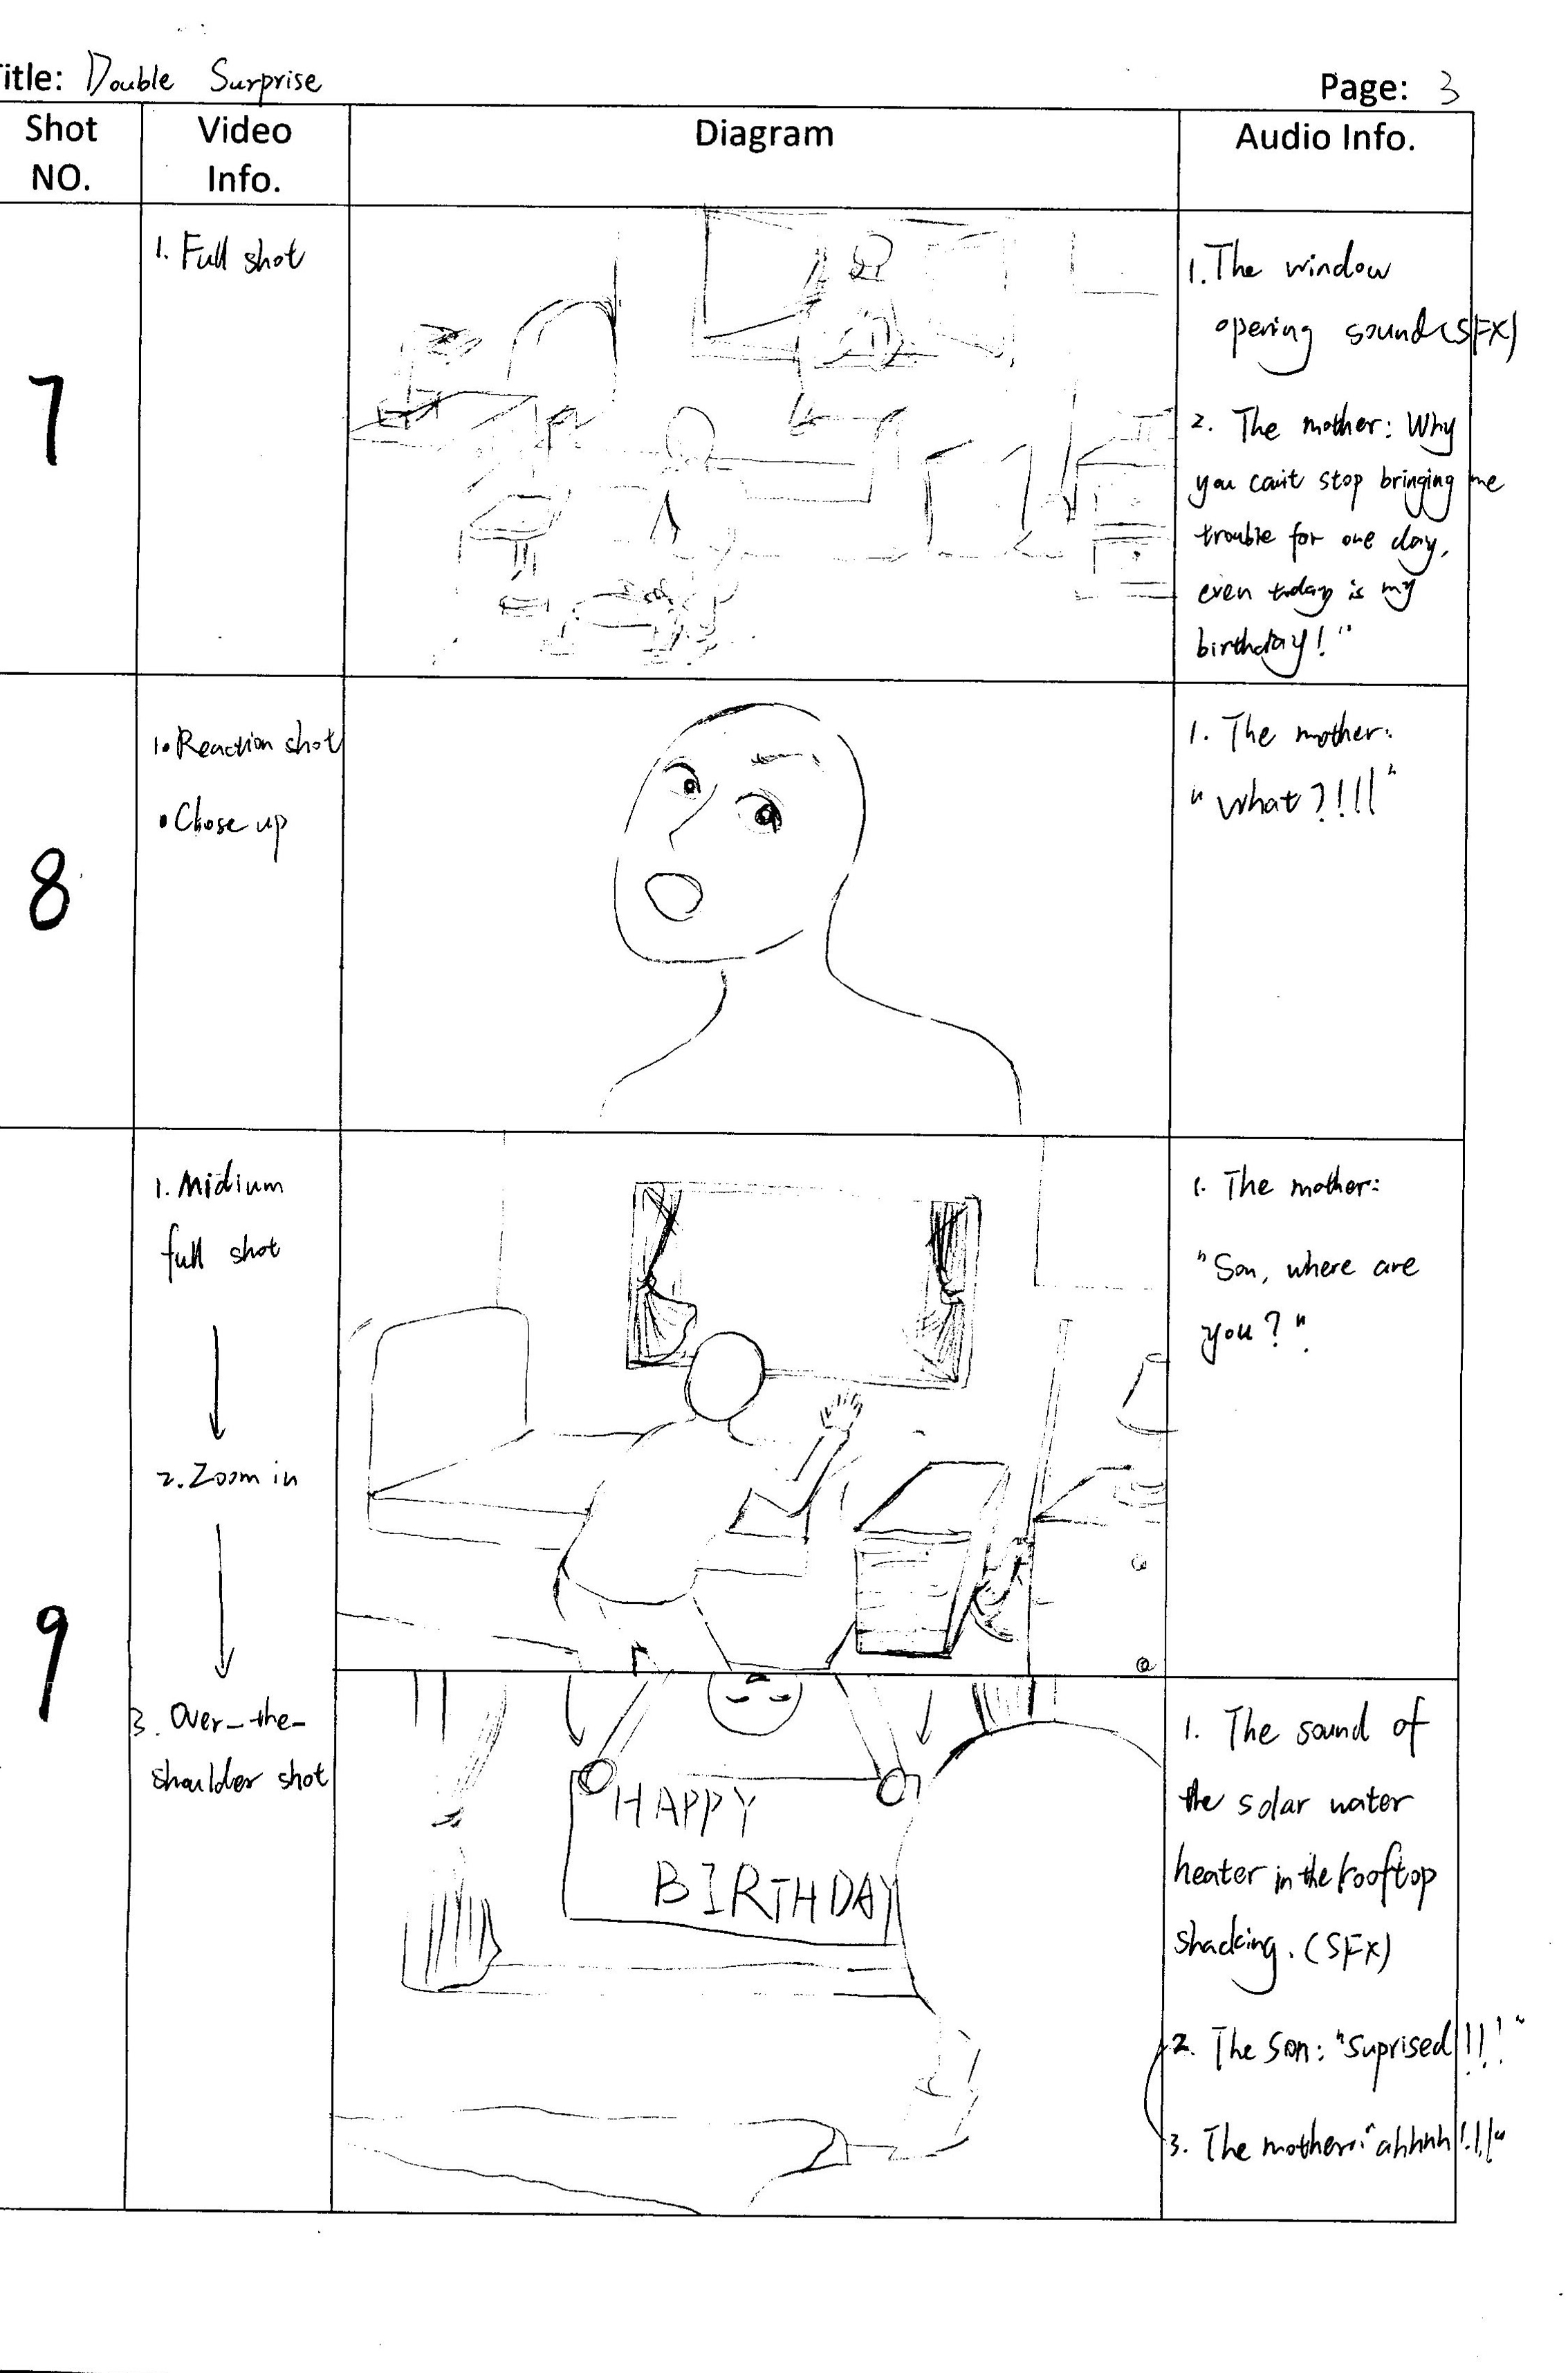 itle: Double Surprise
Page: 3
Shot
NO.
Video
Info.
Diagram
Audio Info.
7
1. Full shot
1. The window
opering sound (SFX)
2. The mother: Why
you can't stop bringing me
trouble for one day,
even today is my
birthday!"
8
1. Reaction shot
• Chose up
1. The mother:
"What?!!!"
9
1. Midium
full shot
2. Zoom in
3. Over-the-
shoulder shot
1. The mother:
"Son, where are
you?"
HAPPY
BIRTHDAY
1. The sound of
the solar water
heater in the rooftop
shacking. (SFX)
2. The Son: "Suprised!!!"
3. The mother: "ahhhh!!!"